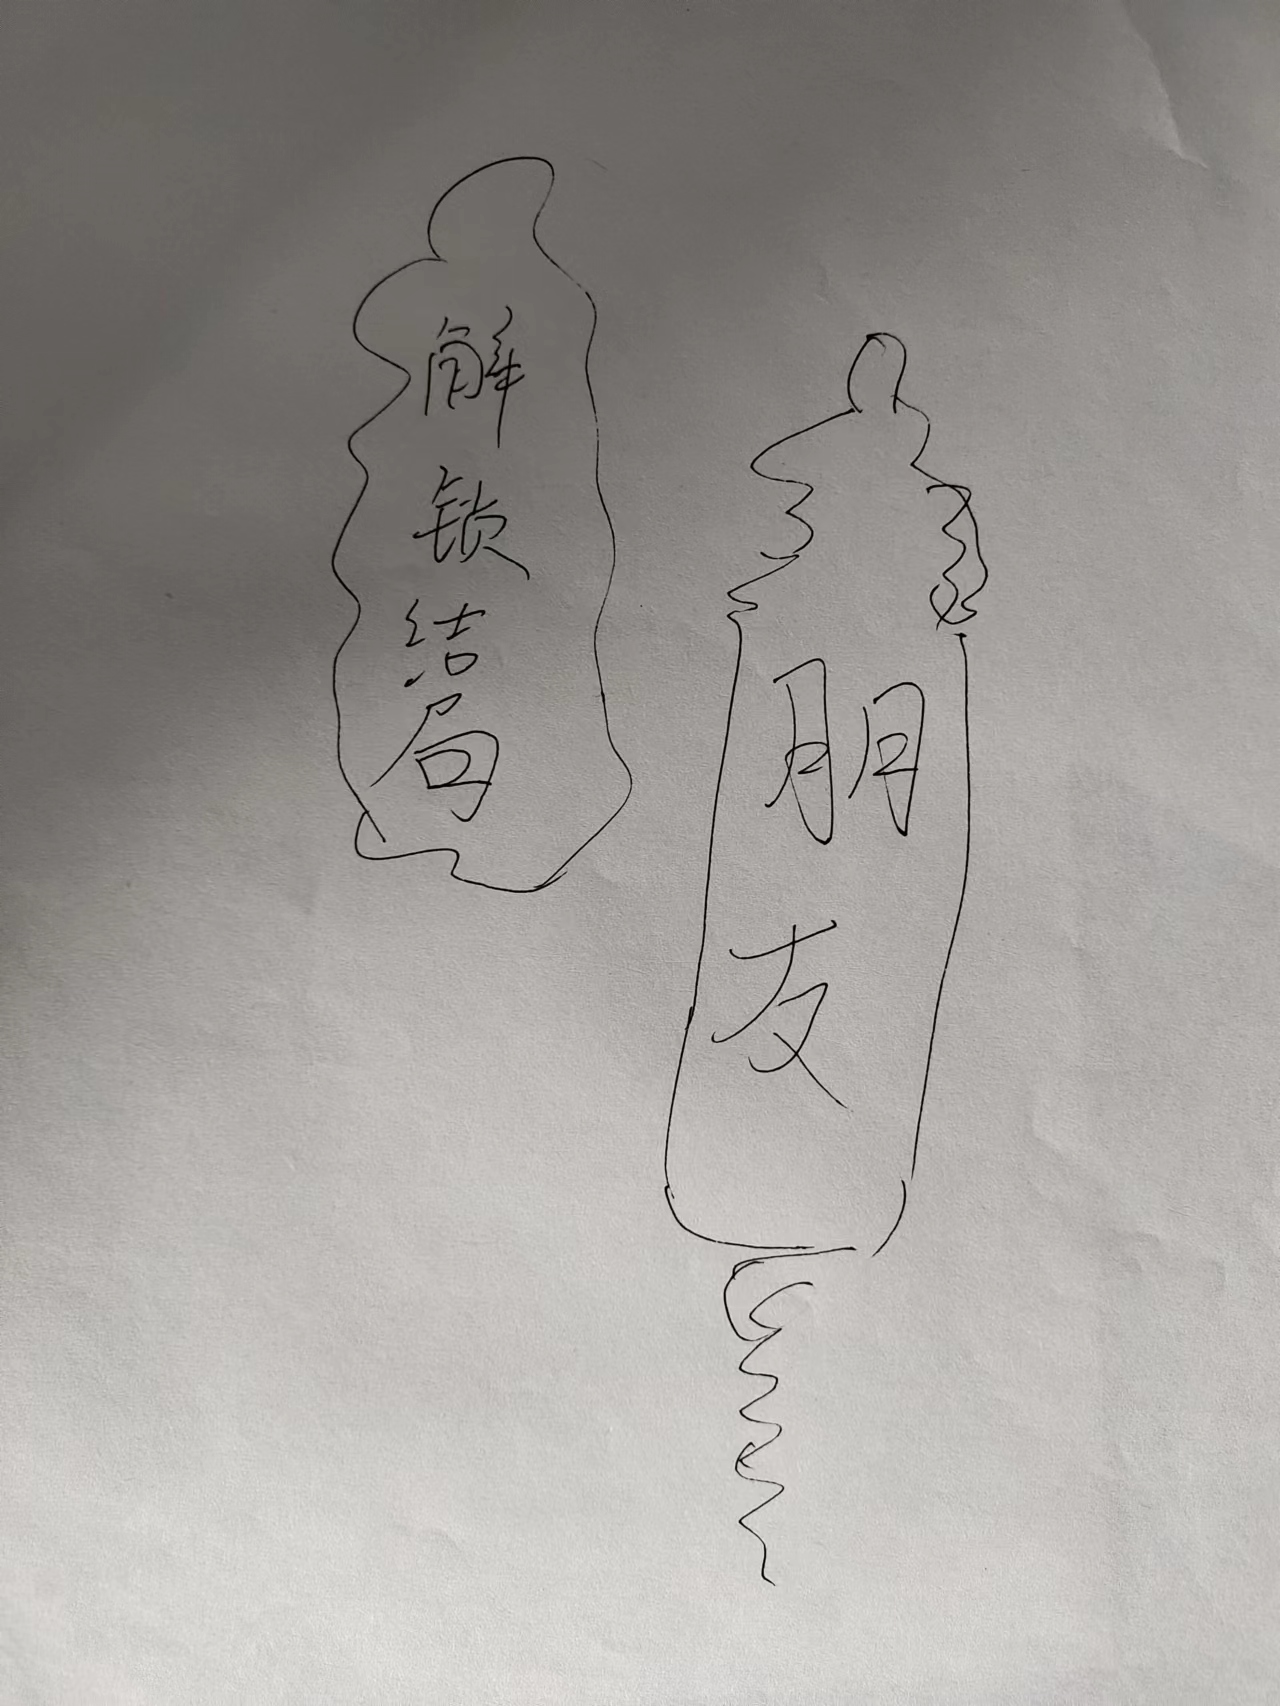 解锁结局
朋友